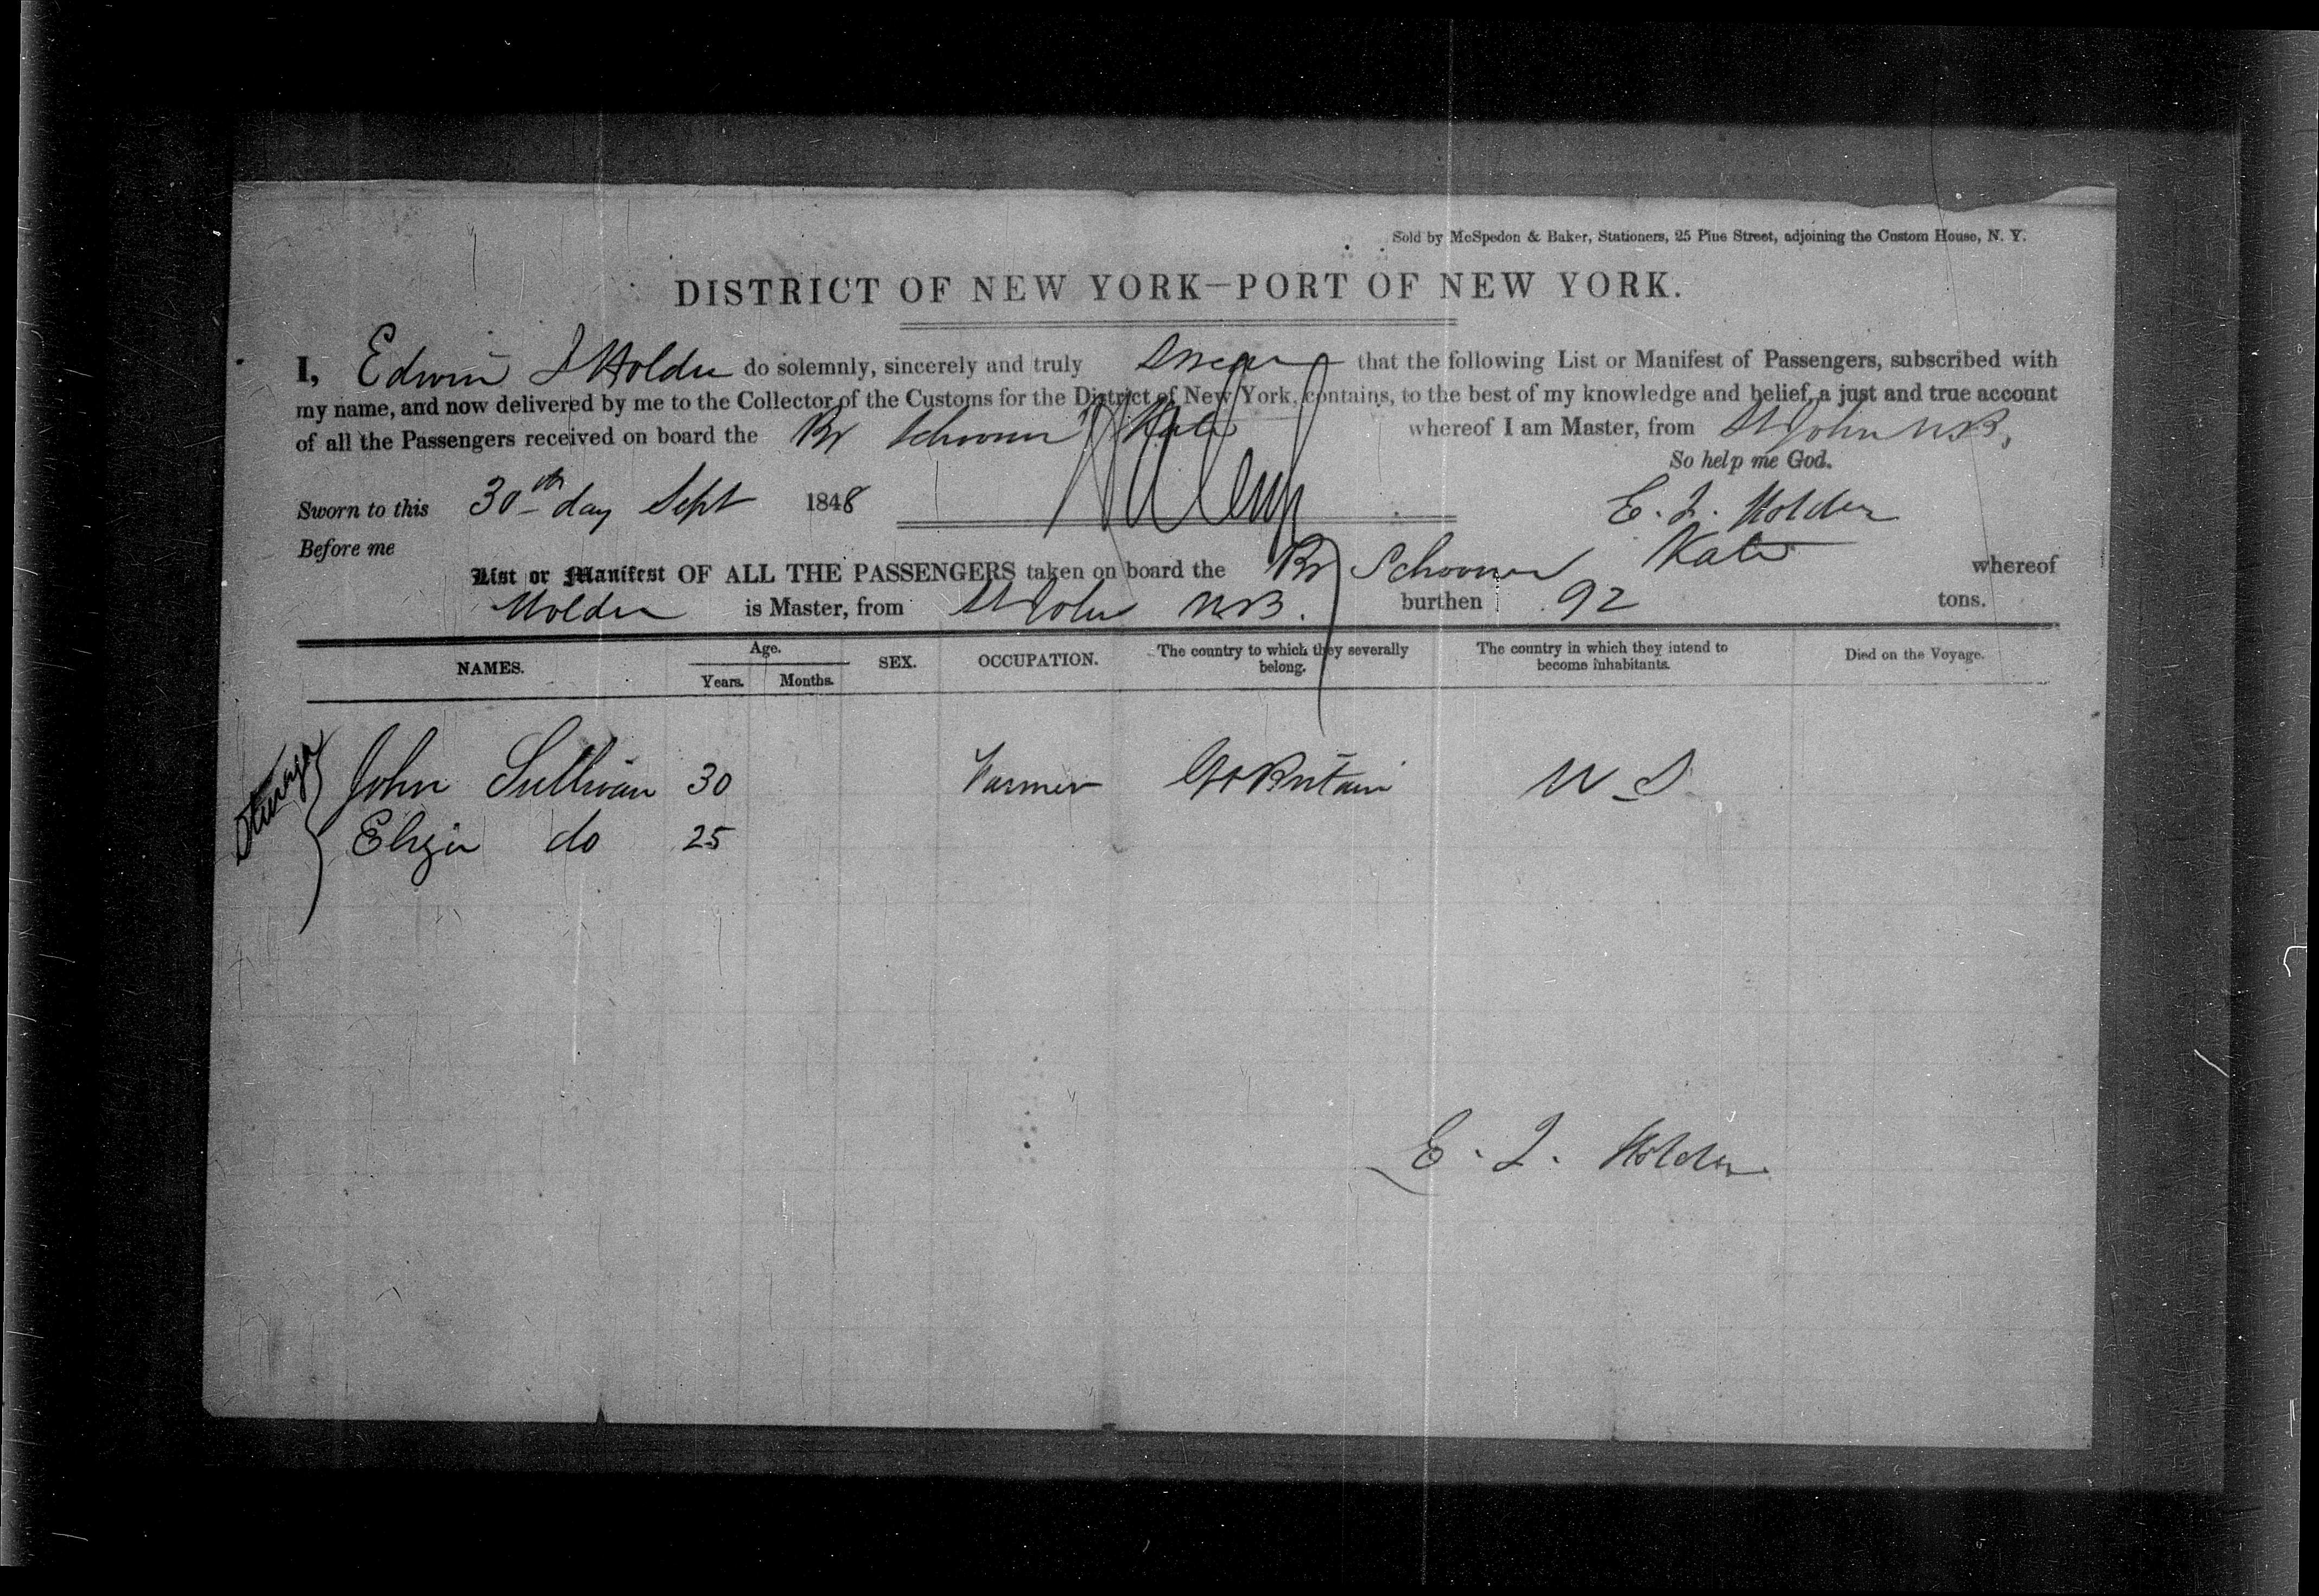 Sold by McSpedon & Baker, Stationers, 25 Pine Street, adjoining the Custom House, N. Y.
DISTRICT OF NEW YORK—PORT OF NEW YORK.
I, Edwin J Holder do solemnly, sincerely and truly Swear that the following List or Manifest of Passengers, subscribed with
my name, and now delivered by me to the Collector of the Customs for the District of New York, contains, to the best of my knowledge and belief, a just and true account
of all the Passengers received on board the Br Schooner Kate whereof I am Master, from St John N.B,
So help me God.
Sworn to this 30th day Sept 1848 E. J. Holder
Before me
List or Manifest OF ALL THE PASSENGERS taken on board the Br Schooner Kate whereof
Holder is Master, from St John N.B. burthen 92 tons.
NAMES. Age. Years. Months. SEX. OCCUPATION. The country to which they severally belong. The country in which they intend to become inhabitants. Died on the Voyage.
Steerage
John Sullivan 30 Farmer Gt Britain U S
Eliza do 25
E. J. Holder